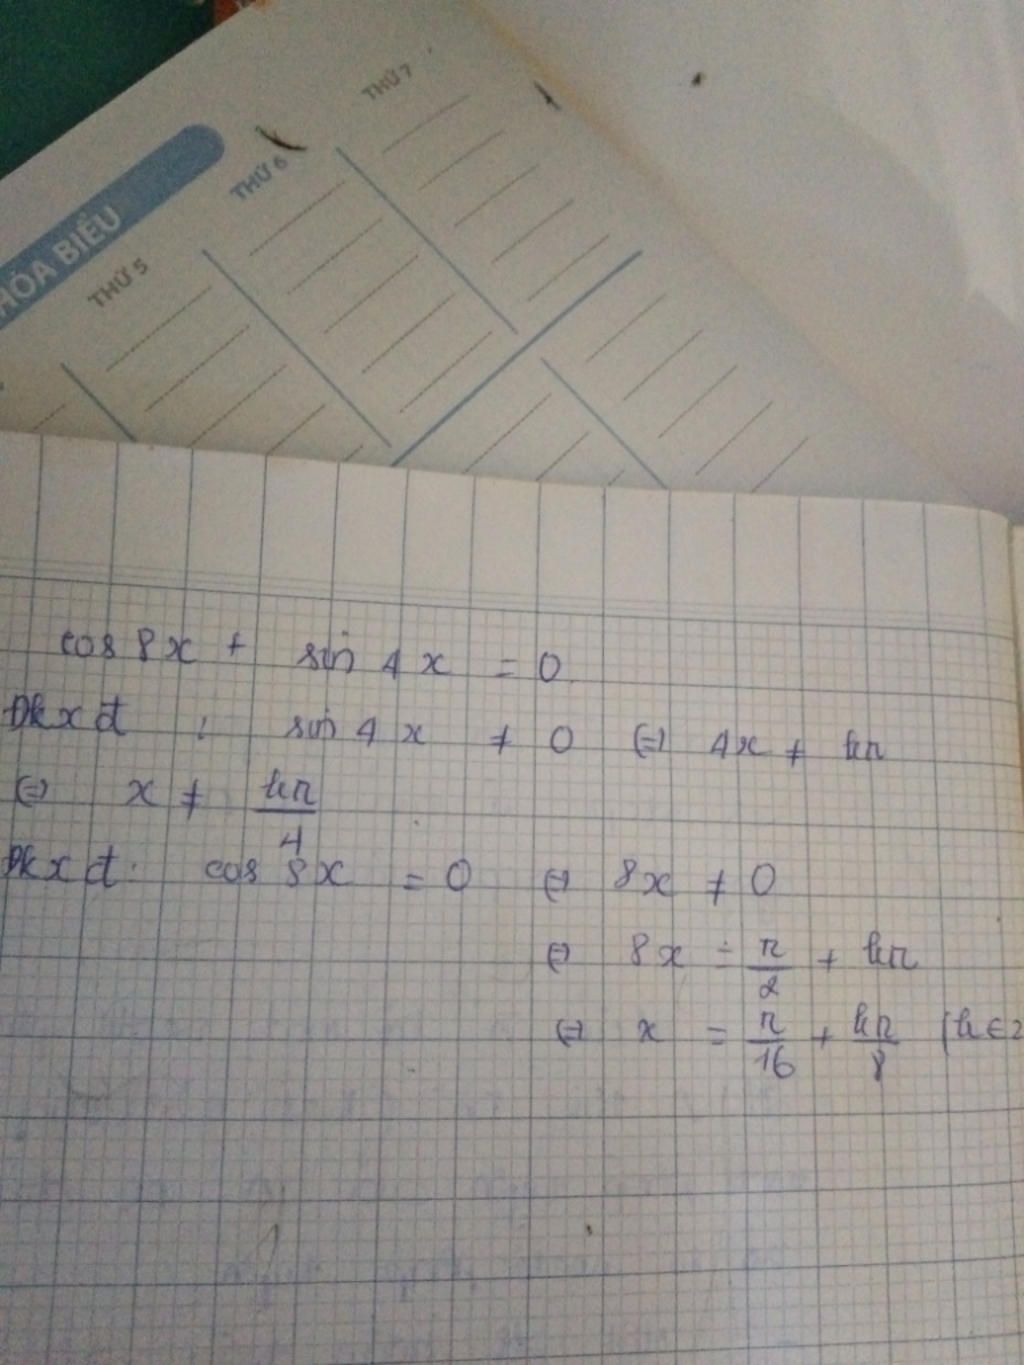 HÓA BIỂU
THỨ 5
THỨ 6
THỨ 7
cos 8x + sin 4x = 0
Đkxđ : sin 4x ≠ 0 ⇔ 4x ≠ kπ
⇔ x ≠ kπ/4
Đkxđ: cos 8x = 0 ⇔ 8x ≠ 0
⇔ 8x = π/2 + kπ
⇔ x = π/16 + kπ/8 (k ∈ Z